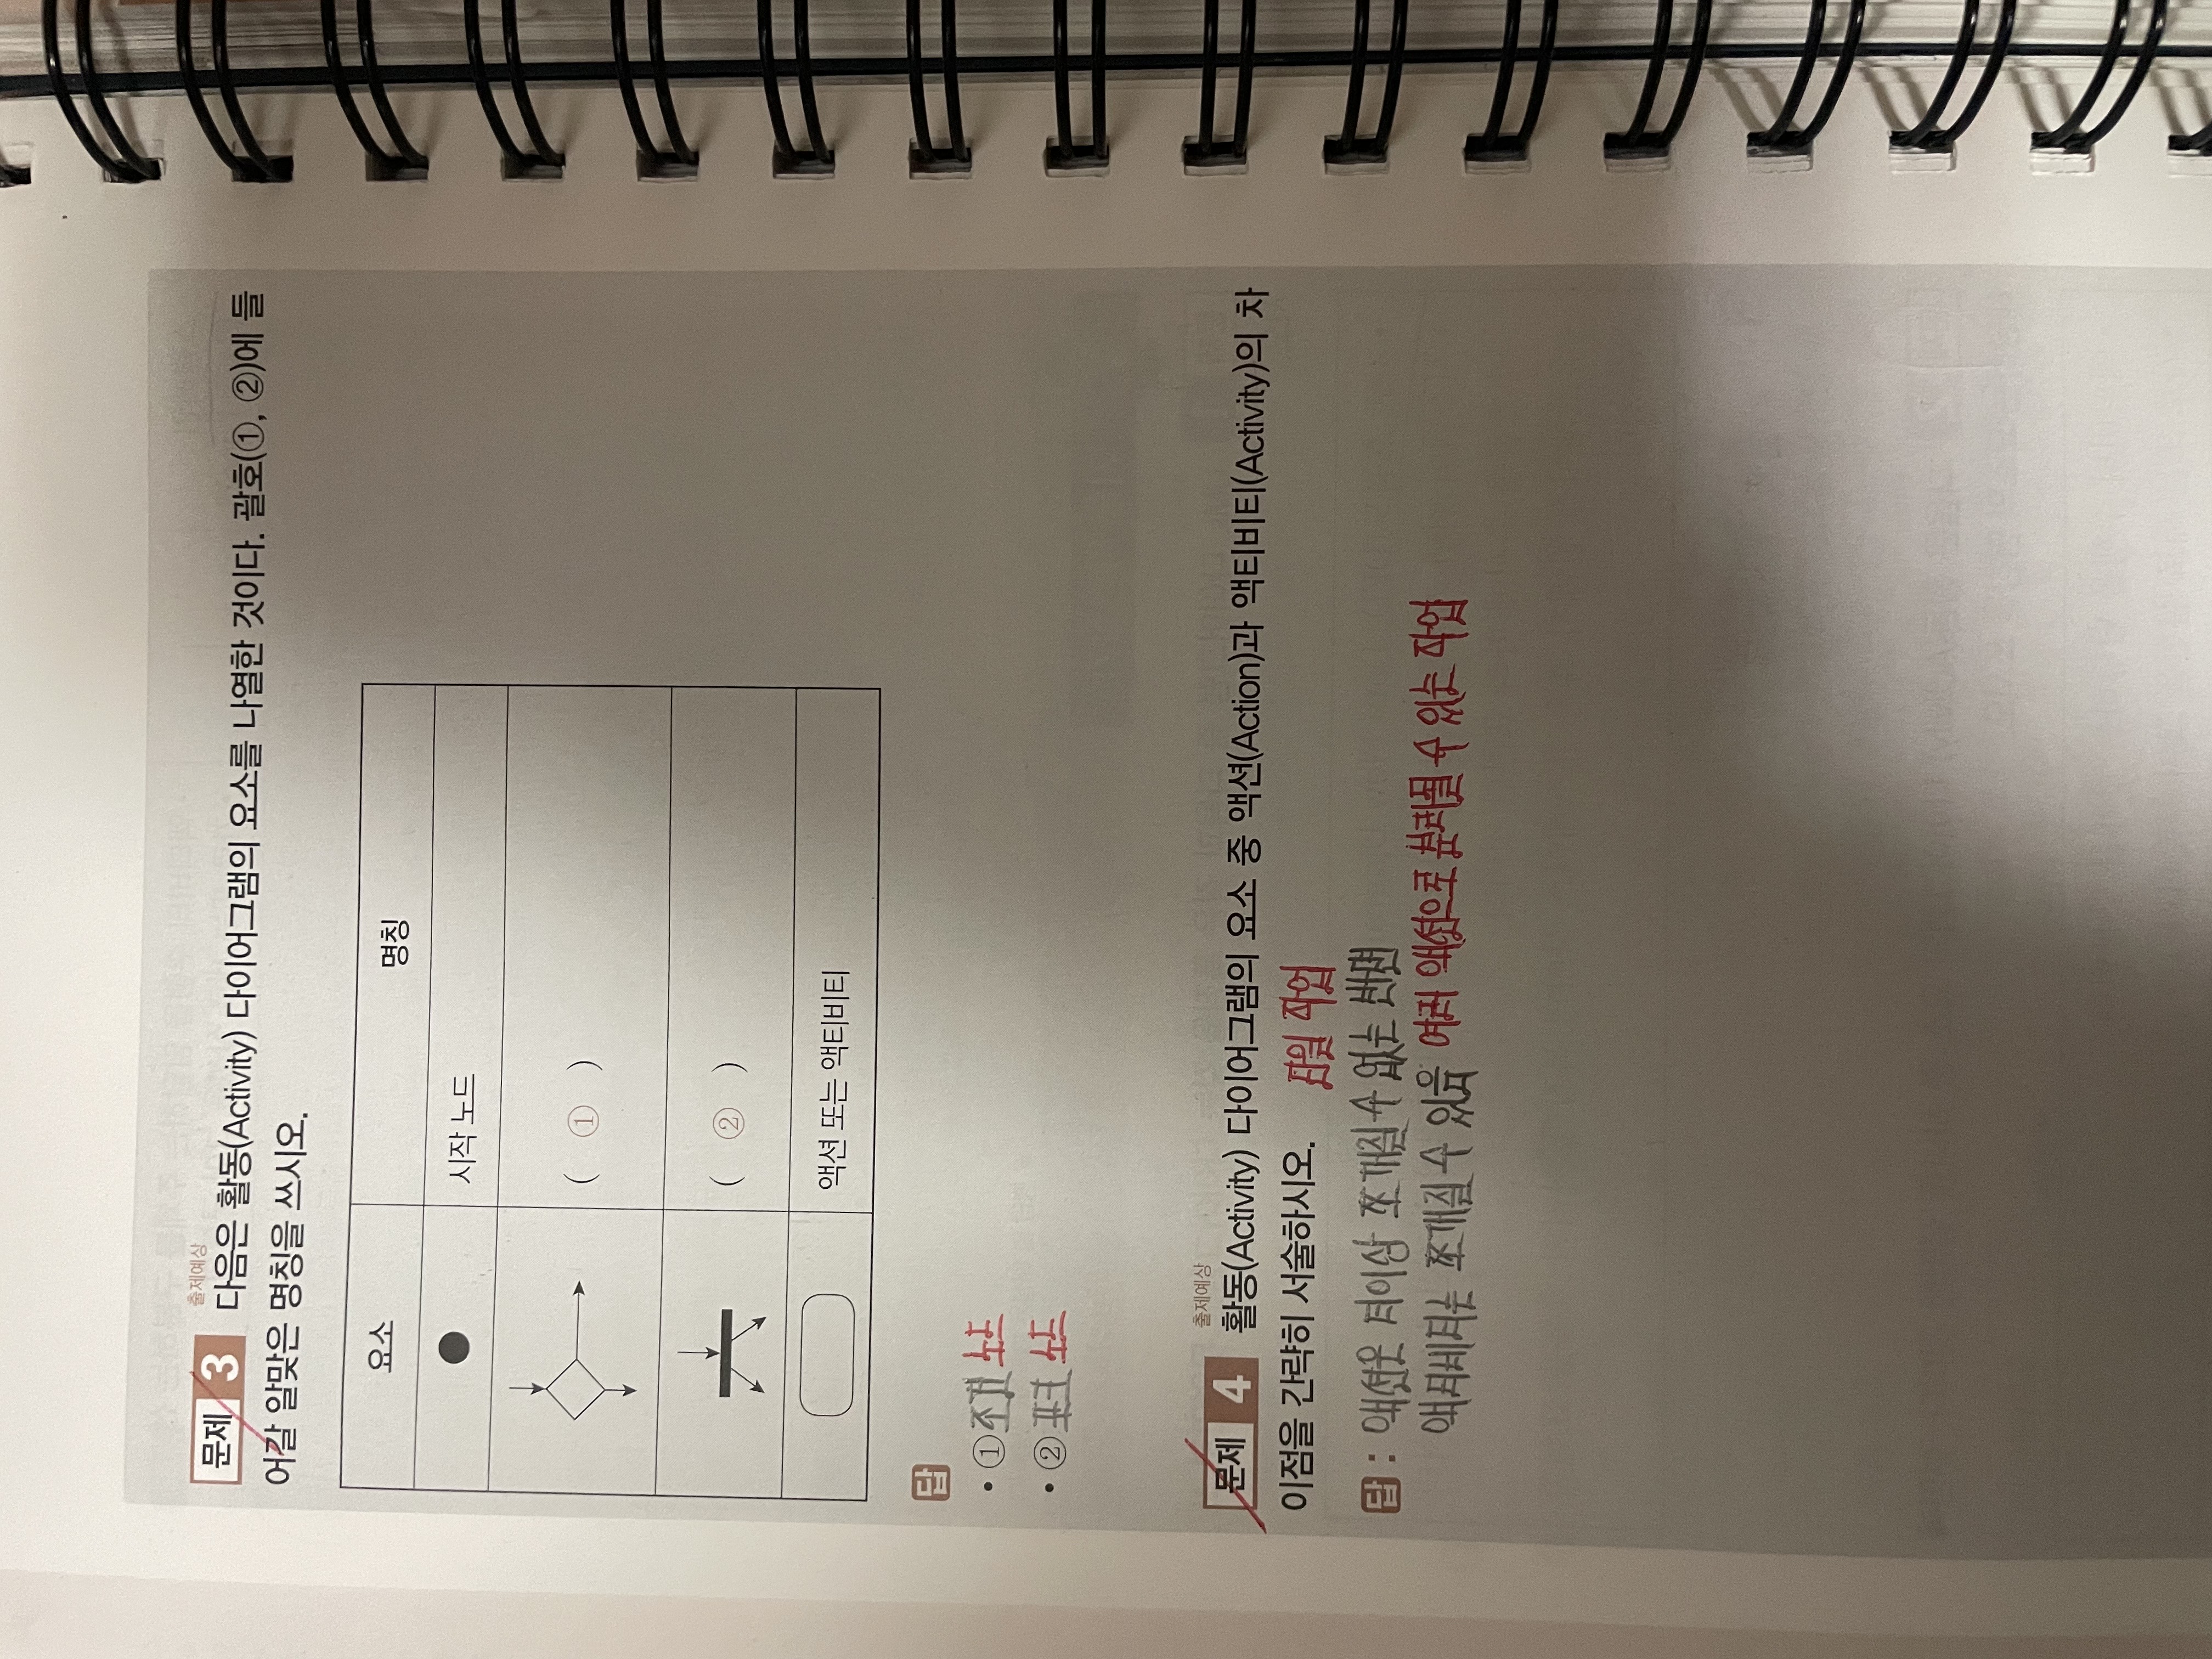 출제예상
문제 3 다음은 활동(Activity) 다이어그램의 요소를 나열한 것이다. 괄호(①, ②)에 들
어갈 알맞은 명칭을 쓰시오.
요소 명칭
시작 노드
( ① )
( ② )
액션 또는 액티비티
답
• ① 조건 노드
• ② 포크 노드
출제예상
문제 4 활동(Activity) 다이어그램의 요소 중 액션(Action)과 액티비티(Activity)의 차
이점을 간략히 서술하시오.
단일 작업
답 : 액션은 더이상 쪼개질 수 없는 반면
액티비티는 쪼개질 수 있음 여러 액션으로 분리될 수 있는 작업